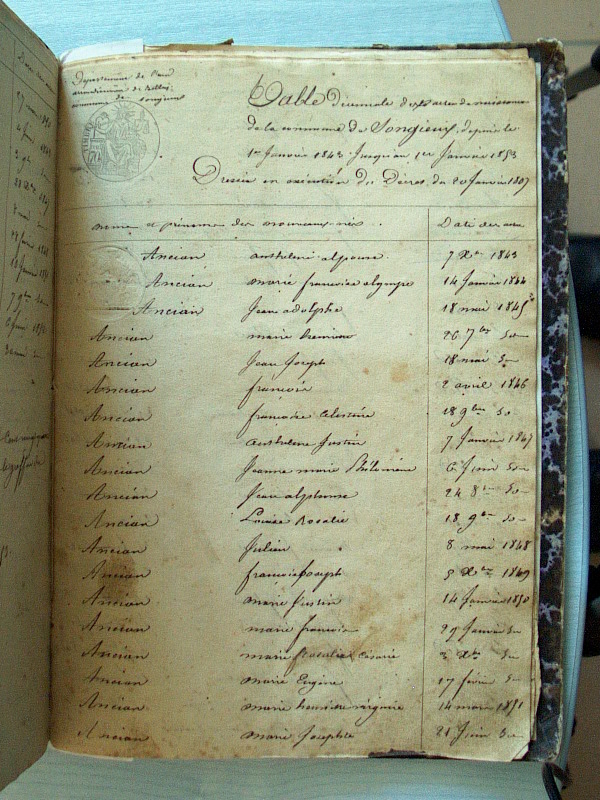 Département de l'Ain
arrondissement de Belley
commune de Songieux
Table Décennale des actes de naissance
de la commune de Songieux, depuis le
1er Janvier 1843 Jusqu'au 1er Janvier 1853
Dressée en exécution du Décret du 20 Janvier 1807
noms et prénoms des nouveaux-nés. Date des actes
Ancian anthelme alphonse 7 Xbre 1843
Ancian marie françoise olympe 14 Janvier 1844
Ancian Jean adolphe 18 mai 1845
Ancian marie 26 7bre do
Ancian Jean Joseph 18 mai do
Ancian françois 2 avril 1846
Ancian françoise célestine 18 9bre do
Ancian anthelme Justin 7 Janvier 1847
Ancian Jeanne marie Philomène 6 Juin do
Ancian Jean alphonse 24 8bre do
Ancian Louise Rosalie 18 9bre do
Ancian Julien 8 mai 1848
Ancian françois Joseph 5 Xbre 1849
Ancian marie 14 Janvier 1850
Ancian marie françoise 29 Janvier do
Ancian marie césarie 3 Xbre do
Ancian marie Eugénie 17 février do
Ancian marie virginie 14 mars 1851
Ancian marie Josephte 21 Juin do